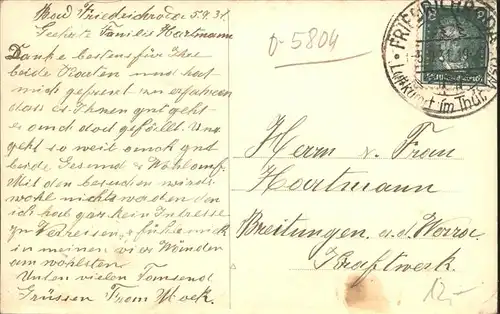 Bad Friedrichroda 5.9.31.
Geehrte Familie Hartmann
Danke bestens für Ihre
beide Karten und hat
mich gefreut zu erfahren
dass es Ihnen gut geht
es auch dort gefällt. Uns
geht es weit auch gut
beide Gesund u. Wohlauf
Mit den besuchen wirds
wohl nichts werden den
ich hab gar kein Intresse
zu Verreisen, fühle mich
in meinen vier Wänden
am wohlsten
Unter vielen Tausend
Grüssen Frau Mock.
D-5804
FRIEDRICHRODA
Luftkurort im Thür. Wald
Herrn u. Frau
Hartmann
Breitungen a.d. Werra
Kraftwerk.
12,-